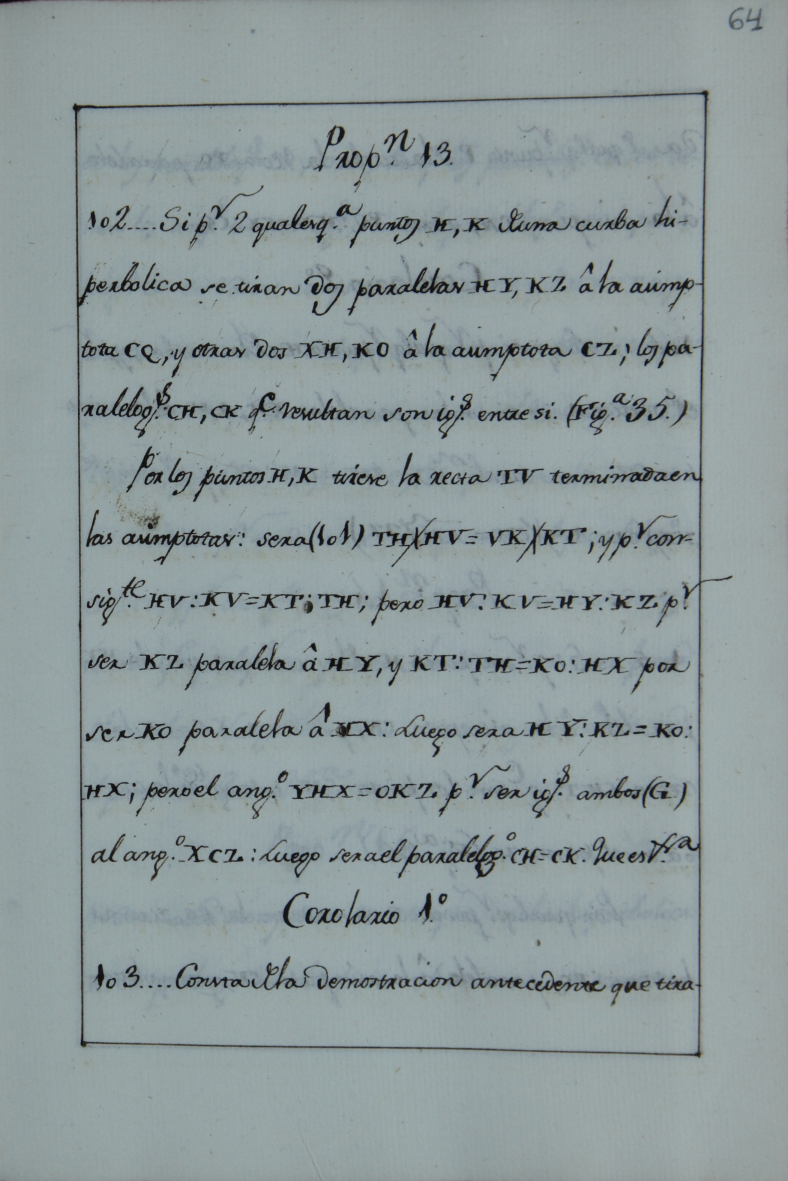 64
Prop.n 13.
102.... Si p.r 2 qualesq.a puntos H, K de una curba hi-
perbolica se tiran dos paralelas HY, KZ â la asimp-
tota CQ, y otras dos XH, KO â la asimptota CZ; los pa-
ralelog.s CH, CK q.e resultan son ig.s entre si. (Fig.a 35.)
Por los puntos H, K tirese la recta TV terminada en
las asimptotas: sera (101) TH╳HV = VK╳KT; y p.r con-
sig.te HV : KV = KT : TH; pero HV : KV = HY : KZ p.r
ser KZ paralela â HY, y KT : TH = KO : HX por
ser KO paralela â HX: Luego sera HY : KZ = KO :
HX; pero el ang.o YHX = OKZ p.r ser ig.s ambos (G)
al ang.o XCZ: Luego sera el paralelog.o CH = CK. Que es
Corolario 1.o
103.... Consta de la demostracion antecedente que tira-